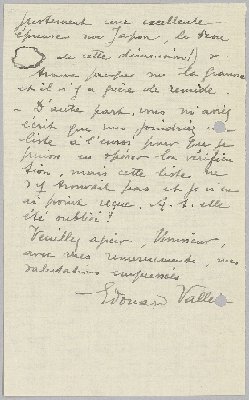 justement une excellente
épreuve sur Japon, le
de cette dimension!
presque sur la gravure
et il n'y a guère de remède.
- D'autre part, vous m'aviez
écrit que vous joindriez
liste à l'envoi pour que je
puisse en opérer la vérifica
tion, mais cette liste ne
s'y trouvait pas et je n'en
ai point reçue. A-t-elle
été oubliée?
Veuillez agréer, Monsieur,
avec mes remerciements, mes
salutations empressées
Edouard Vallet